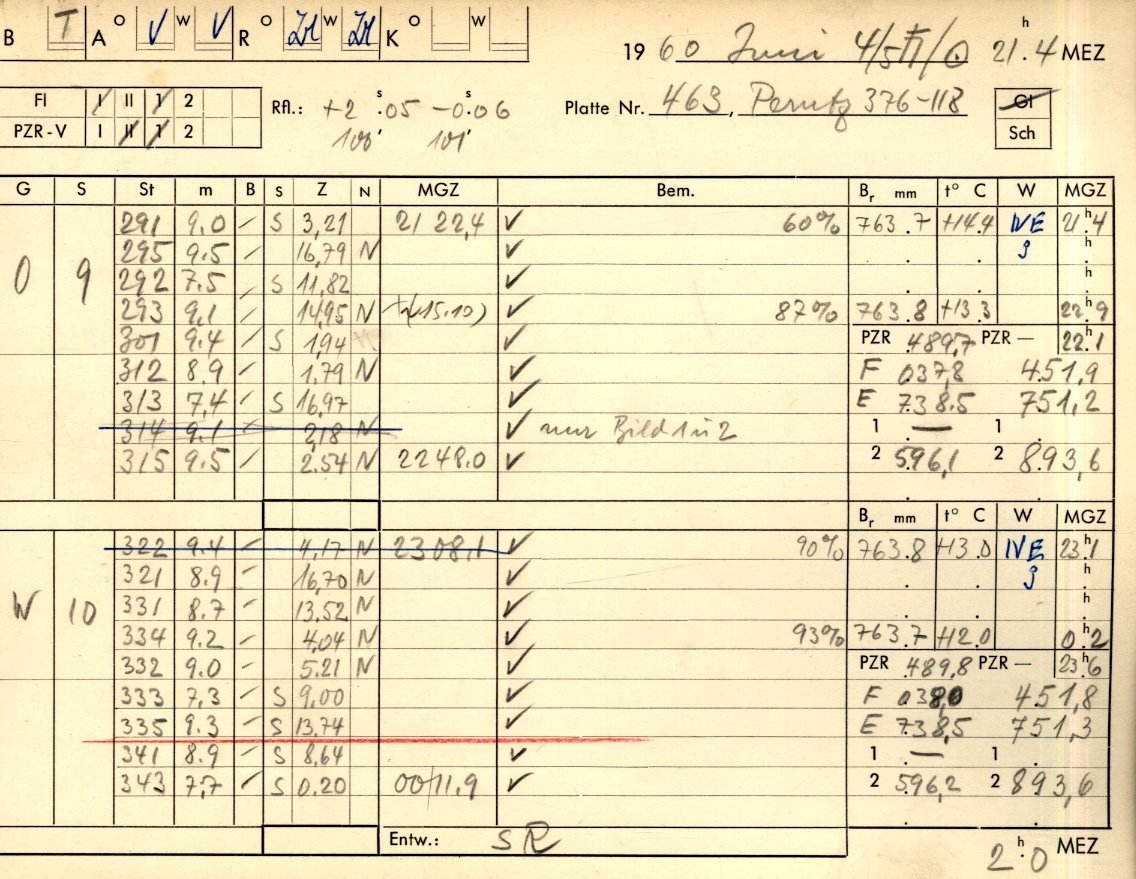 B T A O V W V R O W K O W
19 60 Juni 4/5 21 h . 4 MEZ
Fl I II 1 2
PZR-V I II 1 2
Rfl.: +2 s .05 -0 s .06
100' 101'
Platte Nr. 463, Perutz 376-118
Gl
Sch
G S St m B S Z N MGZ Bem. Br mm t° C W MGZ
O 9
291 9.0 S 3,21 21 22,4 ✓ 60% 763.7 +14.4 IVE 21 h .4
295 9.5 16,79 N ✓
292 7.5 S 11,82 ✓
293 9.1 14,95 N ✓ 87% 763.8 +13.3 22 h .9
301 9.4 S 1,94 ✓ PZR 489,7 PZR – 22 h .1
312 8.9 1,79 N ✓ F 037,8 451,9
313 7,4 S 16,97 ✓ E 738.5 751,2
314 9.1 2,18 N ✓ nur Bild 1 u 2 1 — 1
315 9.5 2.54 N 2248.0 ✓ 2 596,1 2 893,6
Br mm t° C W MGZ
W 10
322 9.4 4,17 N 2308,1 ✓ 90% 763.8 +13.0 IVE 23 h .1
321 8.9 16,70 N ✓
331 8.7 13,52 N ✓
334 9.2 4,04 N ✓ 93% 763.7 +12.0 0 h .2
332 9.0 5.21 N ✓ PZR 489,8 PZR – 23 h .6
333 7,3 S 9,00 ✓ F 038,0 451,8
335 9.3 S 13,74 ✓ E 738,5 751,3
341 8.9 S 8,64 ✓ 1 — 1
343 7,7 S 0.20 00 11.9 ✓ 2 596,2 2 893,6
Entw.: SR
2 h .0 MEZ